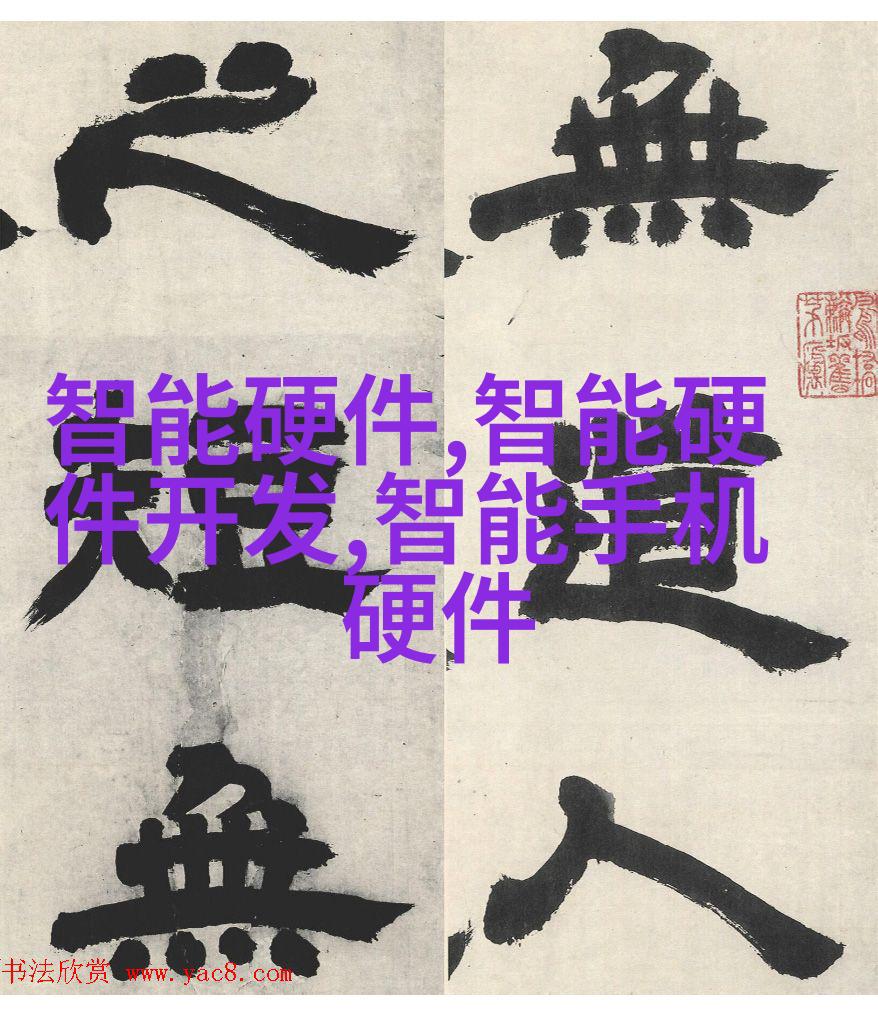 無道人
之短無
智能硬件,智能硬
件开发,智能手机
硬件
书法欣赏 www.yac8.com